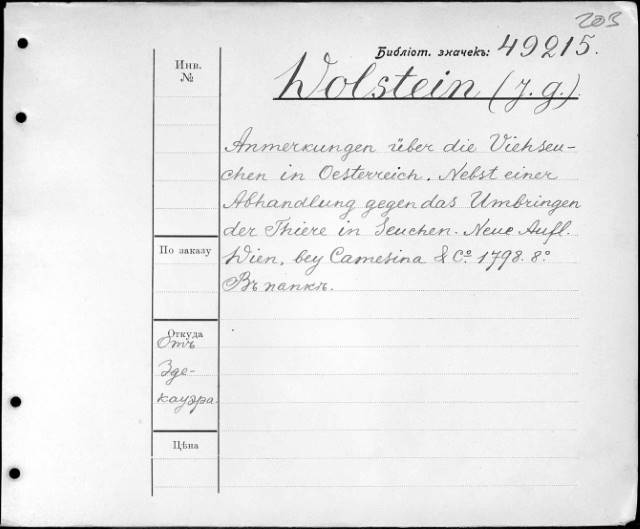 203
Библіот. значекъ: 49215.
Инв. №
Wolstein (J. G.)
Anmerkungen über die Viehseu-
chen in Oesterreich. Nebst einer
Abhandlung gegen das Umbringen
der Thiere in Seuchen. Neue Aufl.
По заказу
Wien, bey Camesina & Co. 1798. 8º
Въ папкѣ.
Откуда
Отъ
Эде-
кауэра.
Цѣна